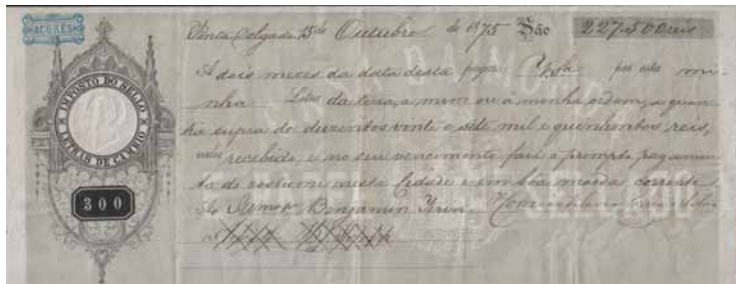 AÇORES
IMPOSTO DO SELLO
LETRAS DE CAMBIO
300
Ponta Delgada 15 de Outubro de 1875 São 227,500 reis
A dois mezes da data desta pagará por esta mi-
nha Letra da terra, a mim ou á minha ordem, a quan-
tia supra de duzentos vinte e sete mil e quinhentos reis,
recebido, e no seu vencimento fará o prompto pagamen-
to do costume nesta Cidade e em boa moeda corrente
Ao Benjamin